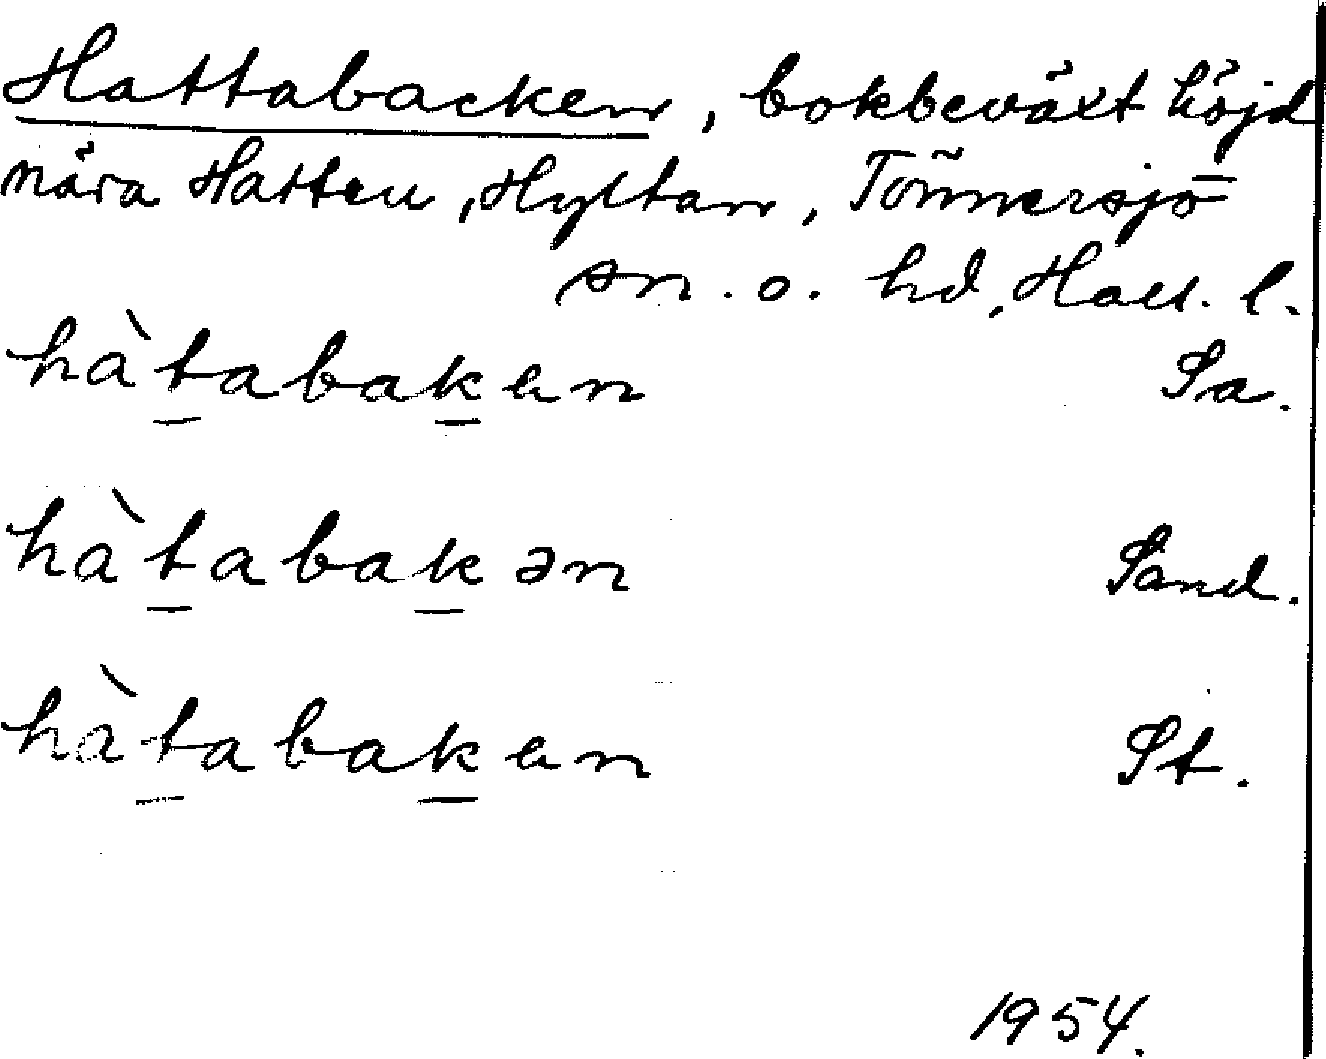 Hattabacken, bokbeväxt höjd
nära Hatten, Hyltan, Tönnersjö
sn. o. hd, Hall. l.
hàtabaken Sa.
hàtabakən Sand.
hàtabaken St.
1954.